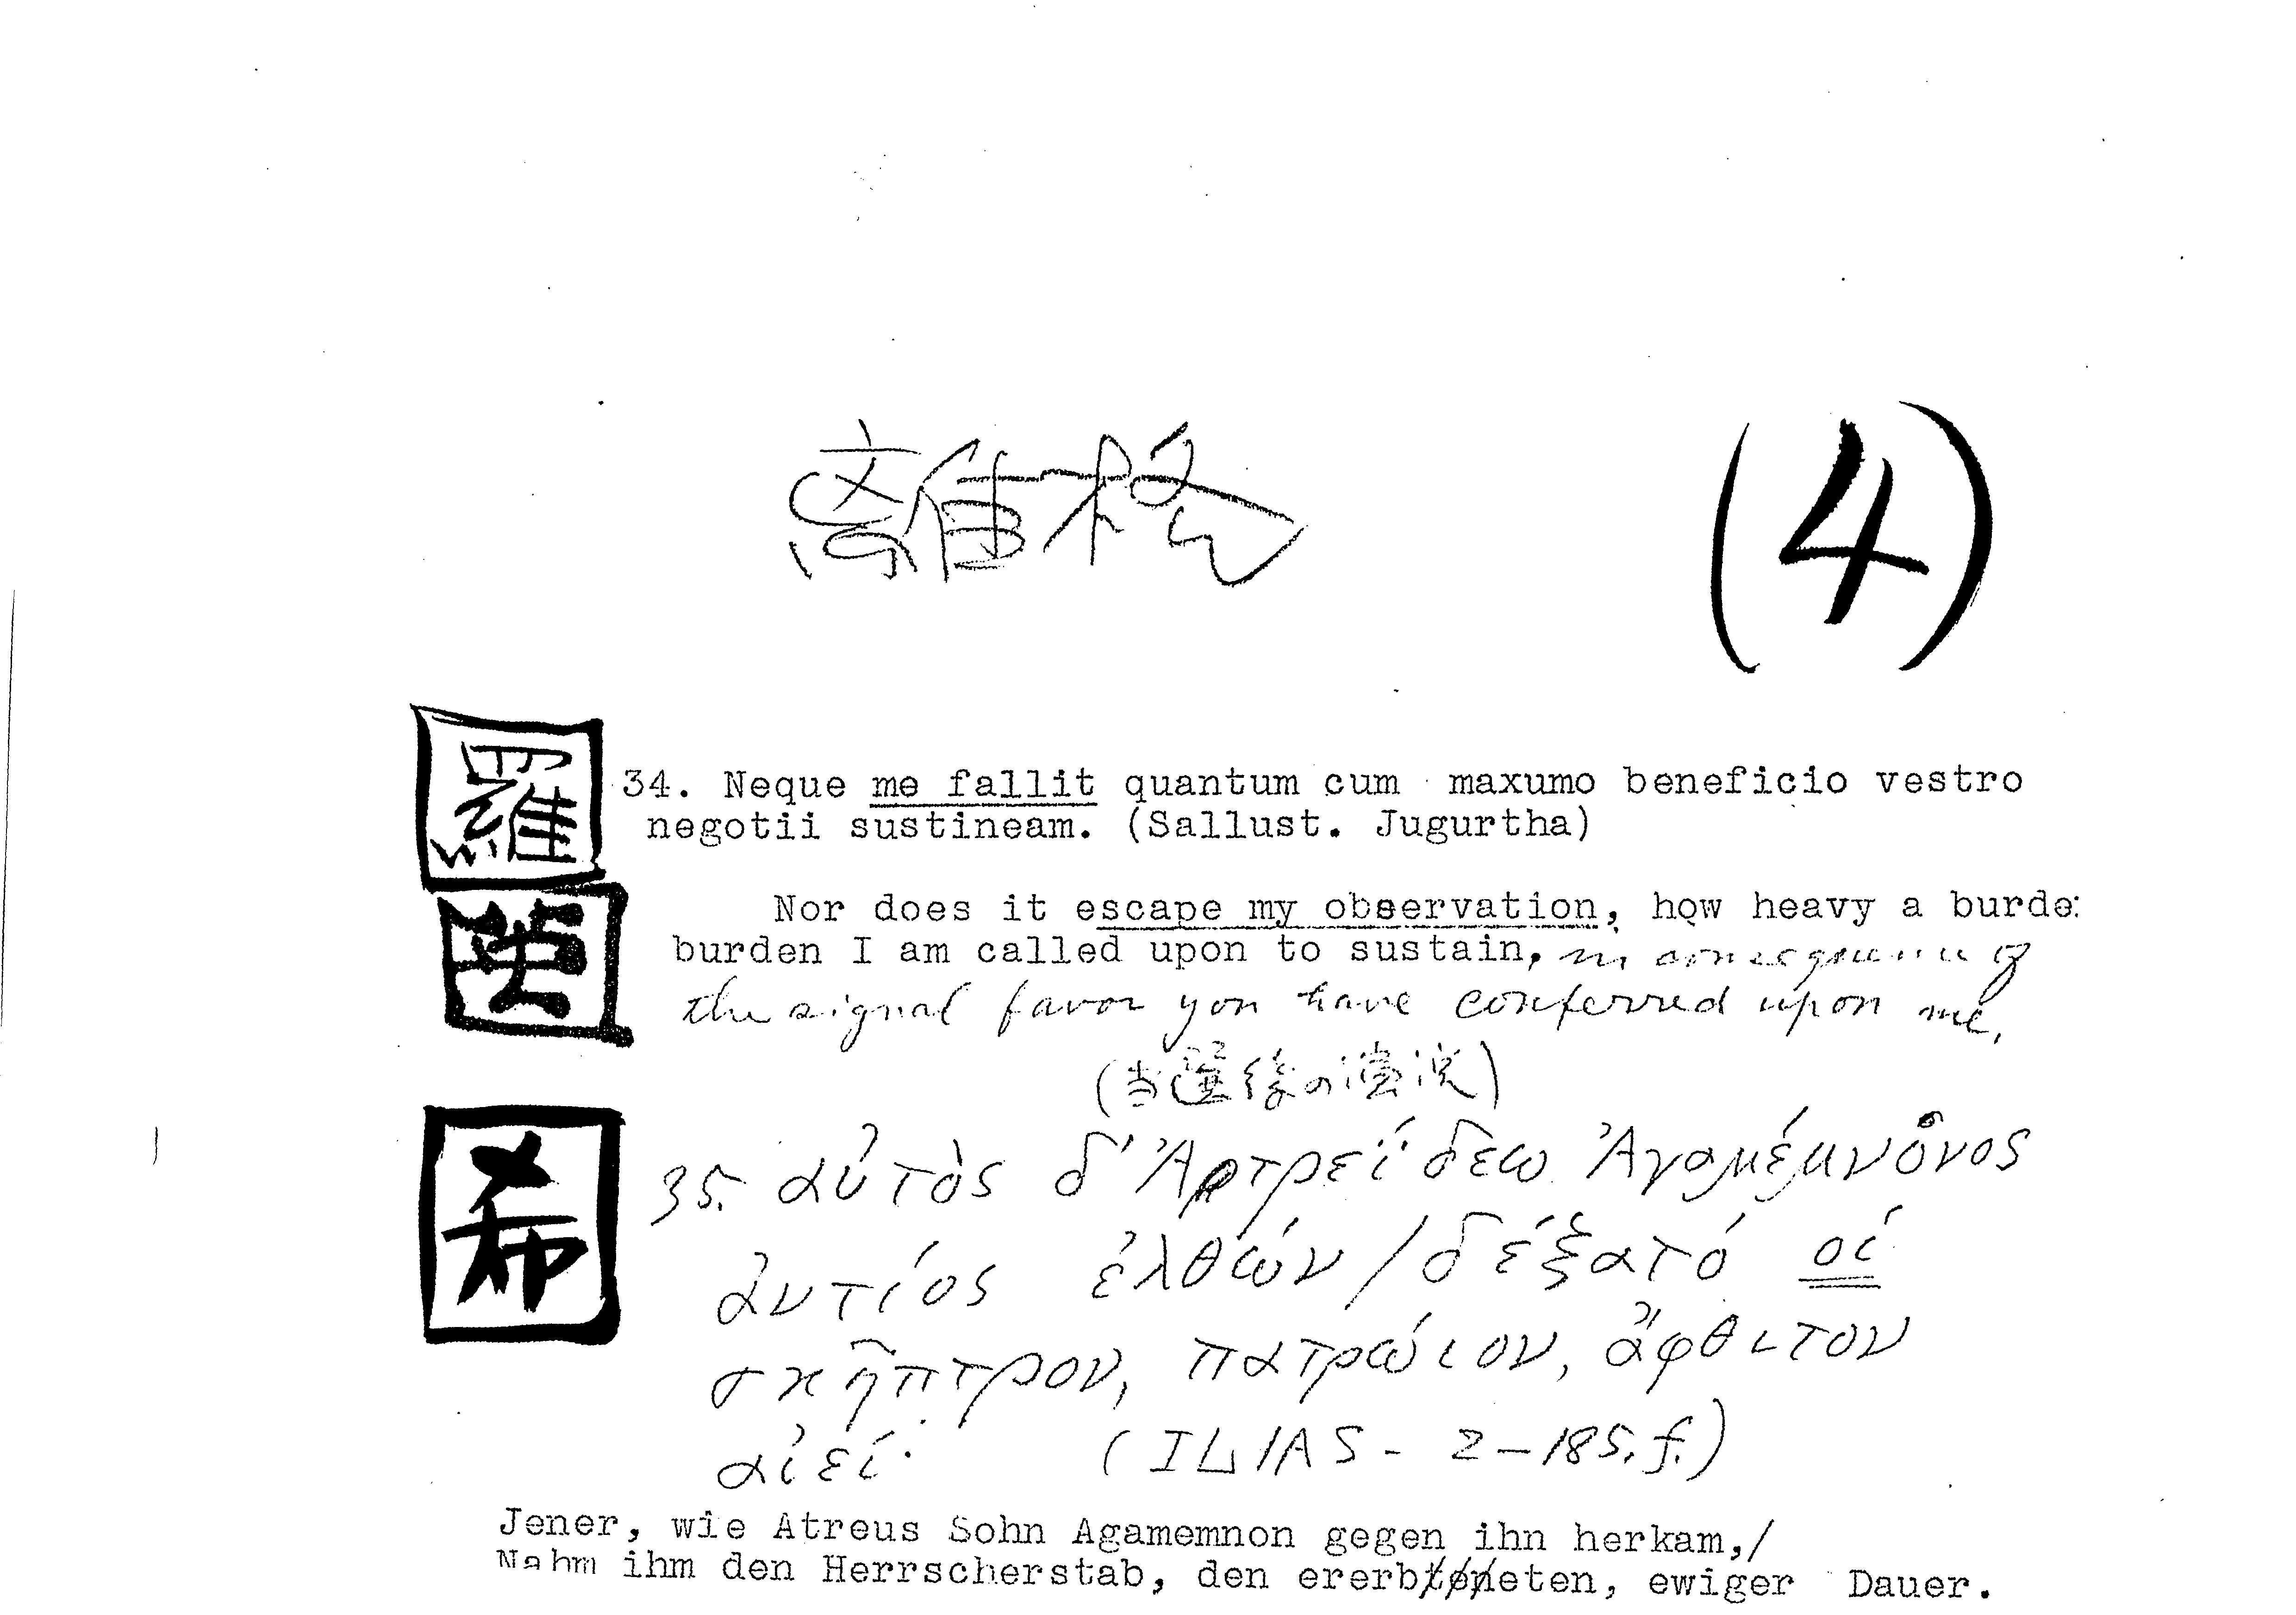 離格
(4)
羅
34. Neque me fallit quantum cum maxumo beneficio vestro
negotii sustineam. (Sallust. Jugurtha)
英
Nor does it escape my observation, how heavy a burde
burden I am called upon to sustain, in consequence of
the signal favor you have conferred upon me.
(当選後の演説)
希
35. αὐτὸς δ' Ἀρτρεΐδεω Ἀγαμέμνονος
ἀντίος ἐλθών / δέξατό οἱ
σκῆπτρον, πατρώιον, ἄφθιτον
αἰεί· (ILIAS - 2 - 185. f.)
Jener, wie Atreus Sohn Agamemnon gegen ihn herkam,/
Nahm ihm den Herrscherstab, den ererbteten, ewiger Dauer.